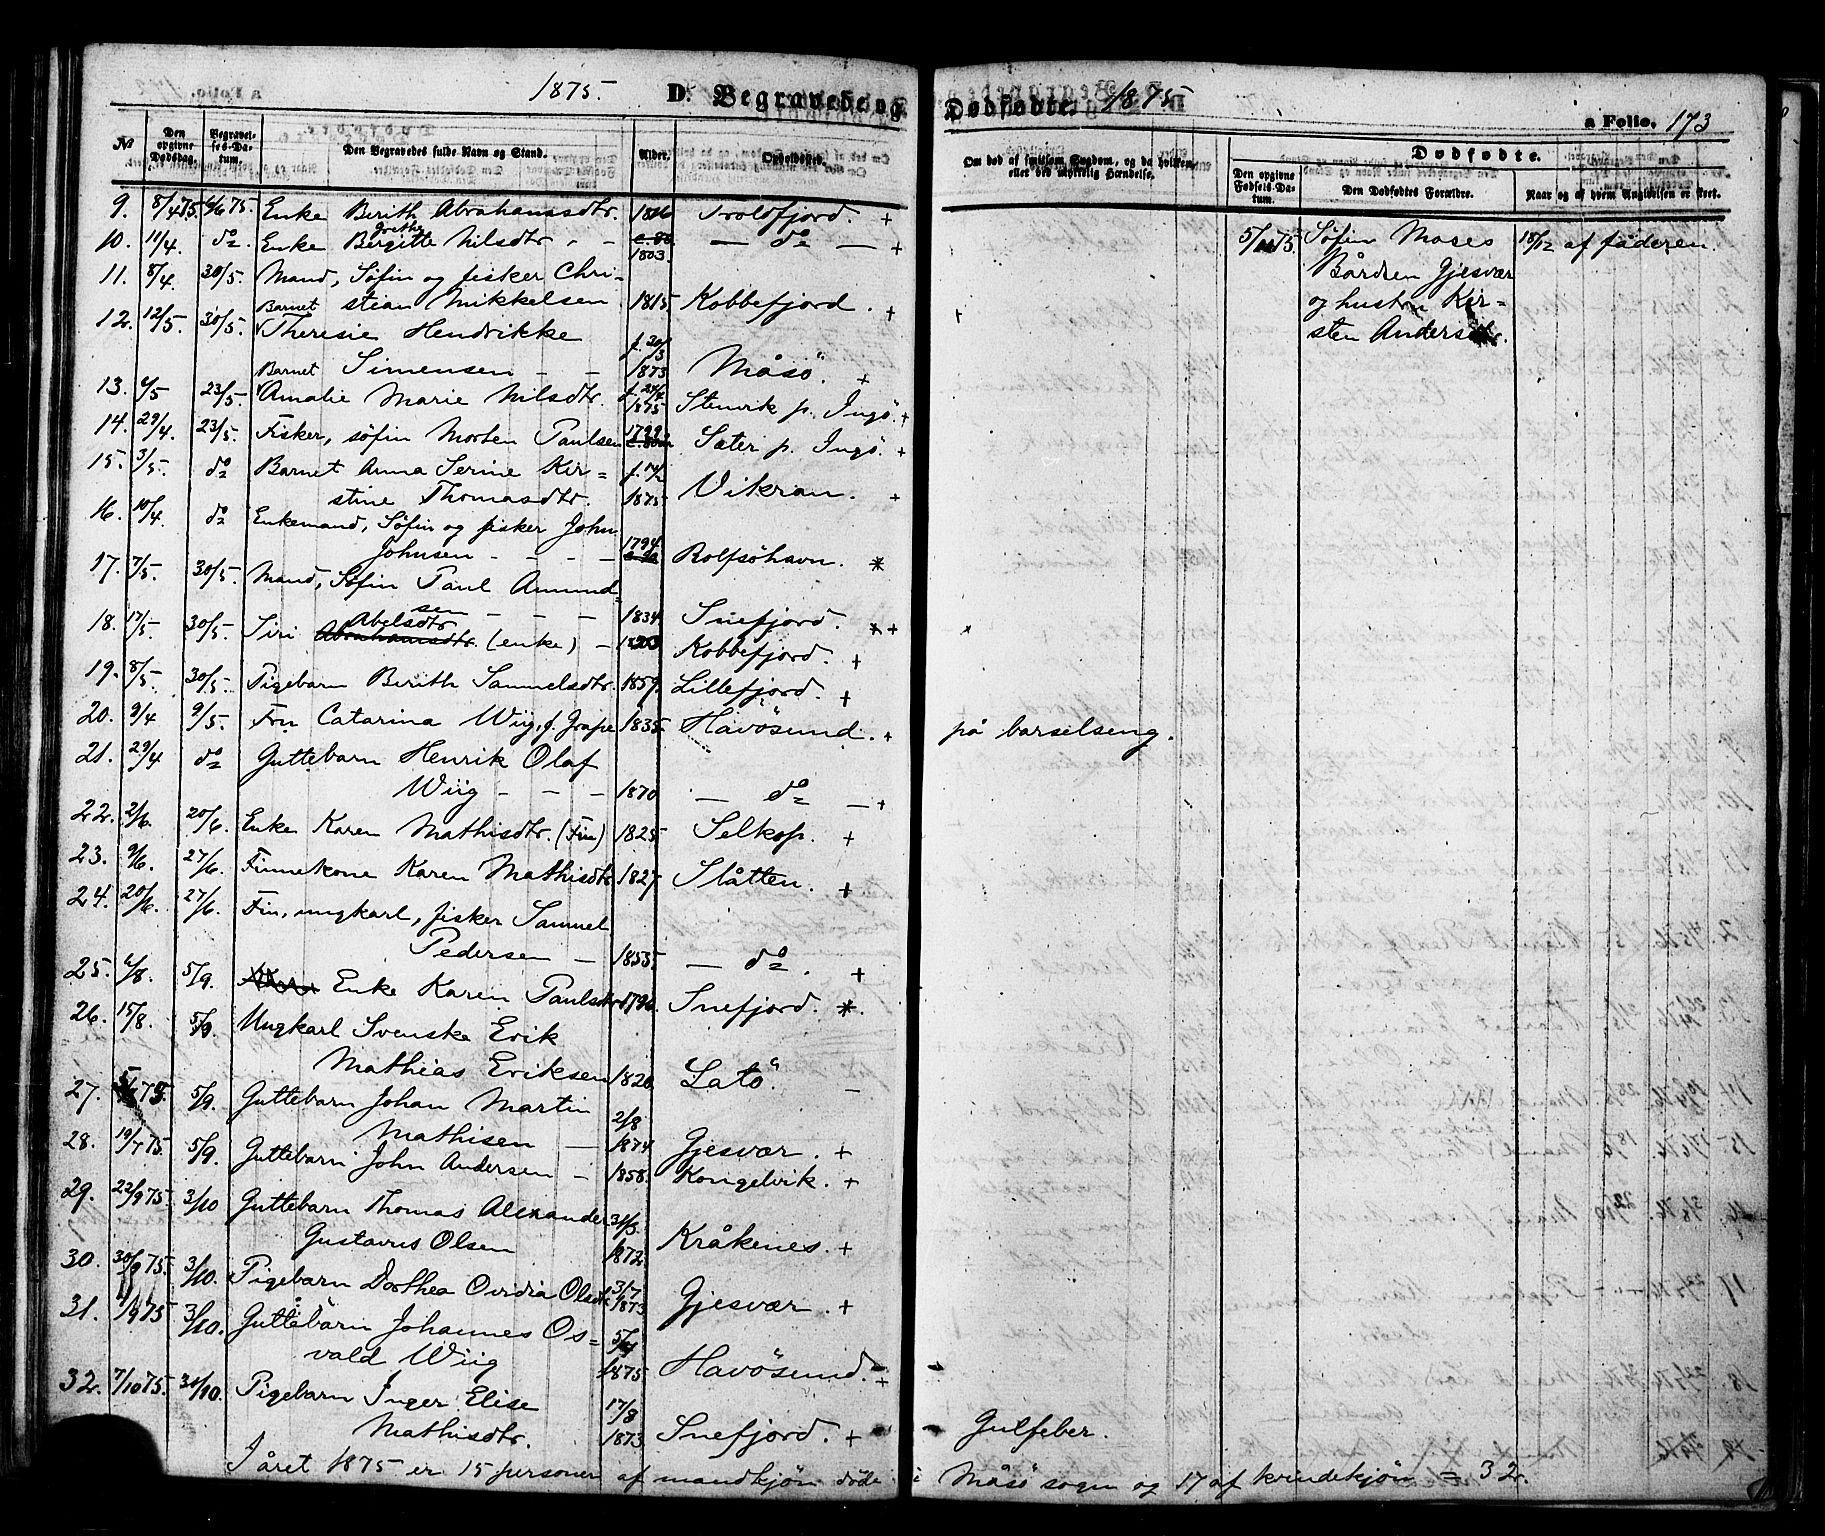 1875. D. Begravede og Dødfødte. 1875
a Folio. 173
№ Den opgivne Dødsdag. Begravelses-Datum. Den Begravedes fulde Navn og Stand. Alder. Opholdssted. Om død af smitsom Sygdom, og da hvilken, eller ved ulykkelig Hændelse.
Dødfødte.
Den opgivne Fødsels-Datum. Den Dødfødtes Forældre. Naar og af hvem Angivelsen er skeet.
9. 8/4 75 6/6 75. Enke Berith Abrahamsdtr. 1816 Troldfjord. +
Grithe
10. 11/4. do. Enke Birgitte Nilsdtr - - 1803. — do — +
11. 8/4. 30/5. Mand, Søfin og fisker Chri-
stian Mikkelsen 1815 Kobbefjord. +
12. 12/5. 30/5. Barnet Theresie Hendrikke
Simensen - - f. 20/3 1873 Måsö. +
13. 6/5 23/5. Barnet Amalie Marie Nilsdtr. f. 24/4 1875 Stenvik p. Ingö. +
14. 29/4. 23/5. Fisker, søfin Morten Paulsen 1799. Sæter p. Ingö. +
15. 3/5. do Barnet Anna Serine Kir=
stine Thomasdtr. f. 14/2 1875 Vikran. +
16. 10/4. do Enkemand, Söfin og fisker John
Johnsen - - - - 1794. Rolfsöhavn. *
17. 7/5. 30/5. Mand, Söfin Paul Amund=
sen - - - 1834. Snefjord. *
18. 17/5 30/5. Siri Abrahamsdtr. Abelsdtr (enke) - 1803 Kobbefjord. +
19. 8/5. 30/5. Pigebarn Berith Samuelsdtr. 1859. Lillefjord. +
20. 9/4 9/5. Fru Catarina Wiig, f. Grape 1835 Havösund. + på barselseng.
21. 29/4 do Guttebarn Henrik Olaf
Wiig - - - 1870 — do — +
22. 2/6. 20/6. Enke Karen Mathisdtr. (Fin) 1825 Selkop. +
23. 9/6. 27/6. Finnekone Karen Mathisdtr 1827 Slåtten. +
24. 20/6. 27/6. Fin, ungkarl, fisker Samuel
Pedersen - 1855 — do. +
25. 6/8. 5/9. Enke Karen Paulsdtr 1796. Snefjord. *.
26. 15/8. 5/9. Ungkarl Svenske Erik
Mathias Eriksen 1820. Latö. -
27. 75. 5/9. Guttebarn Johan Martin
Mathisen - 2/8 1874 Gjesvær. +
28. 19/7 75. 5/9. Guttebarn John Andersen - 1858. Kongelvik. +
29. 22/9 75. 3/10 Guttebarn Thomas Alexander
Gustavus Olsen 31/3 1872. Kråkenes. +
30. 30/9 75. 3/10. Pigebarn Dorthea Ovidia Olsdtr 31/7 1873 Gjesvær. +
31. 1/9 75 3/10. Guttebarn Johannes Os=
vald Wiig 5/4 1875 Havösund. +
32. 7/10 75. 31/10. Pigebarn Inger Elise
Mathisdtr. 17/8 1873. Snefjord. + Gulfeber.
5/ 75. Søfin Moses 18/12 af faderen.
Bårdsen Gjesvær
og hustru Kir=
sten Andersdtr.
I året 1875 er 15 personer af mandkjön døde i Måsö sogn og 17 af kvindekjön = 32.